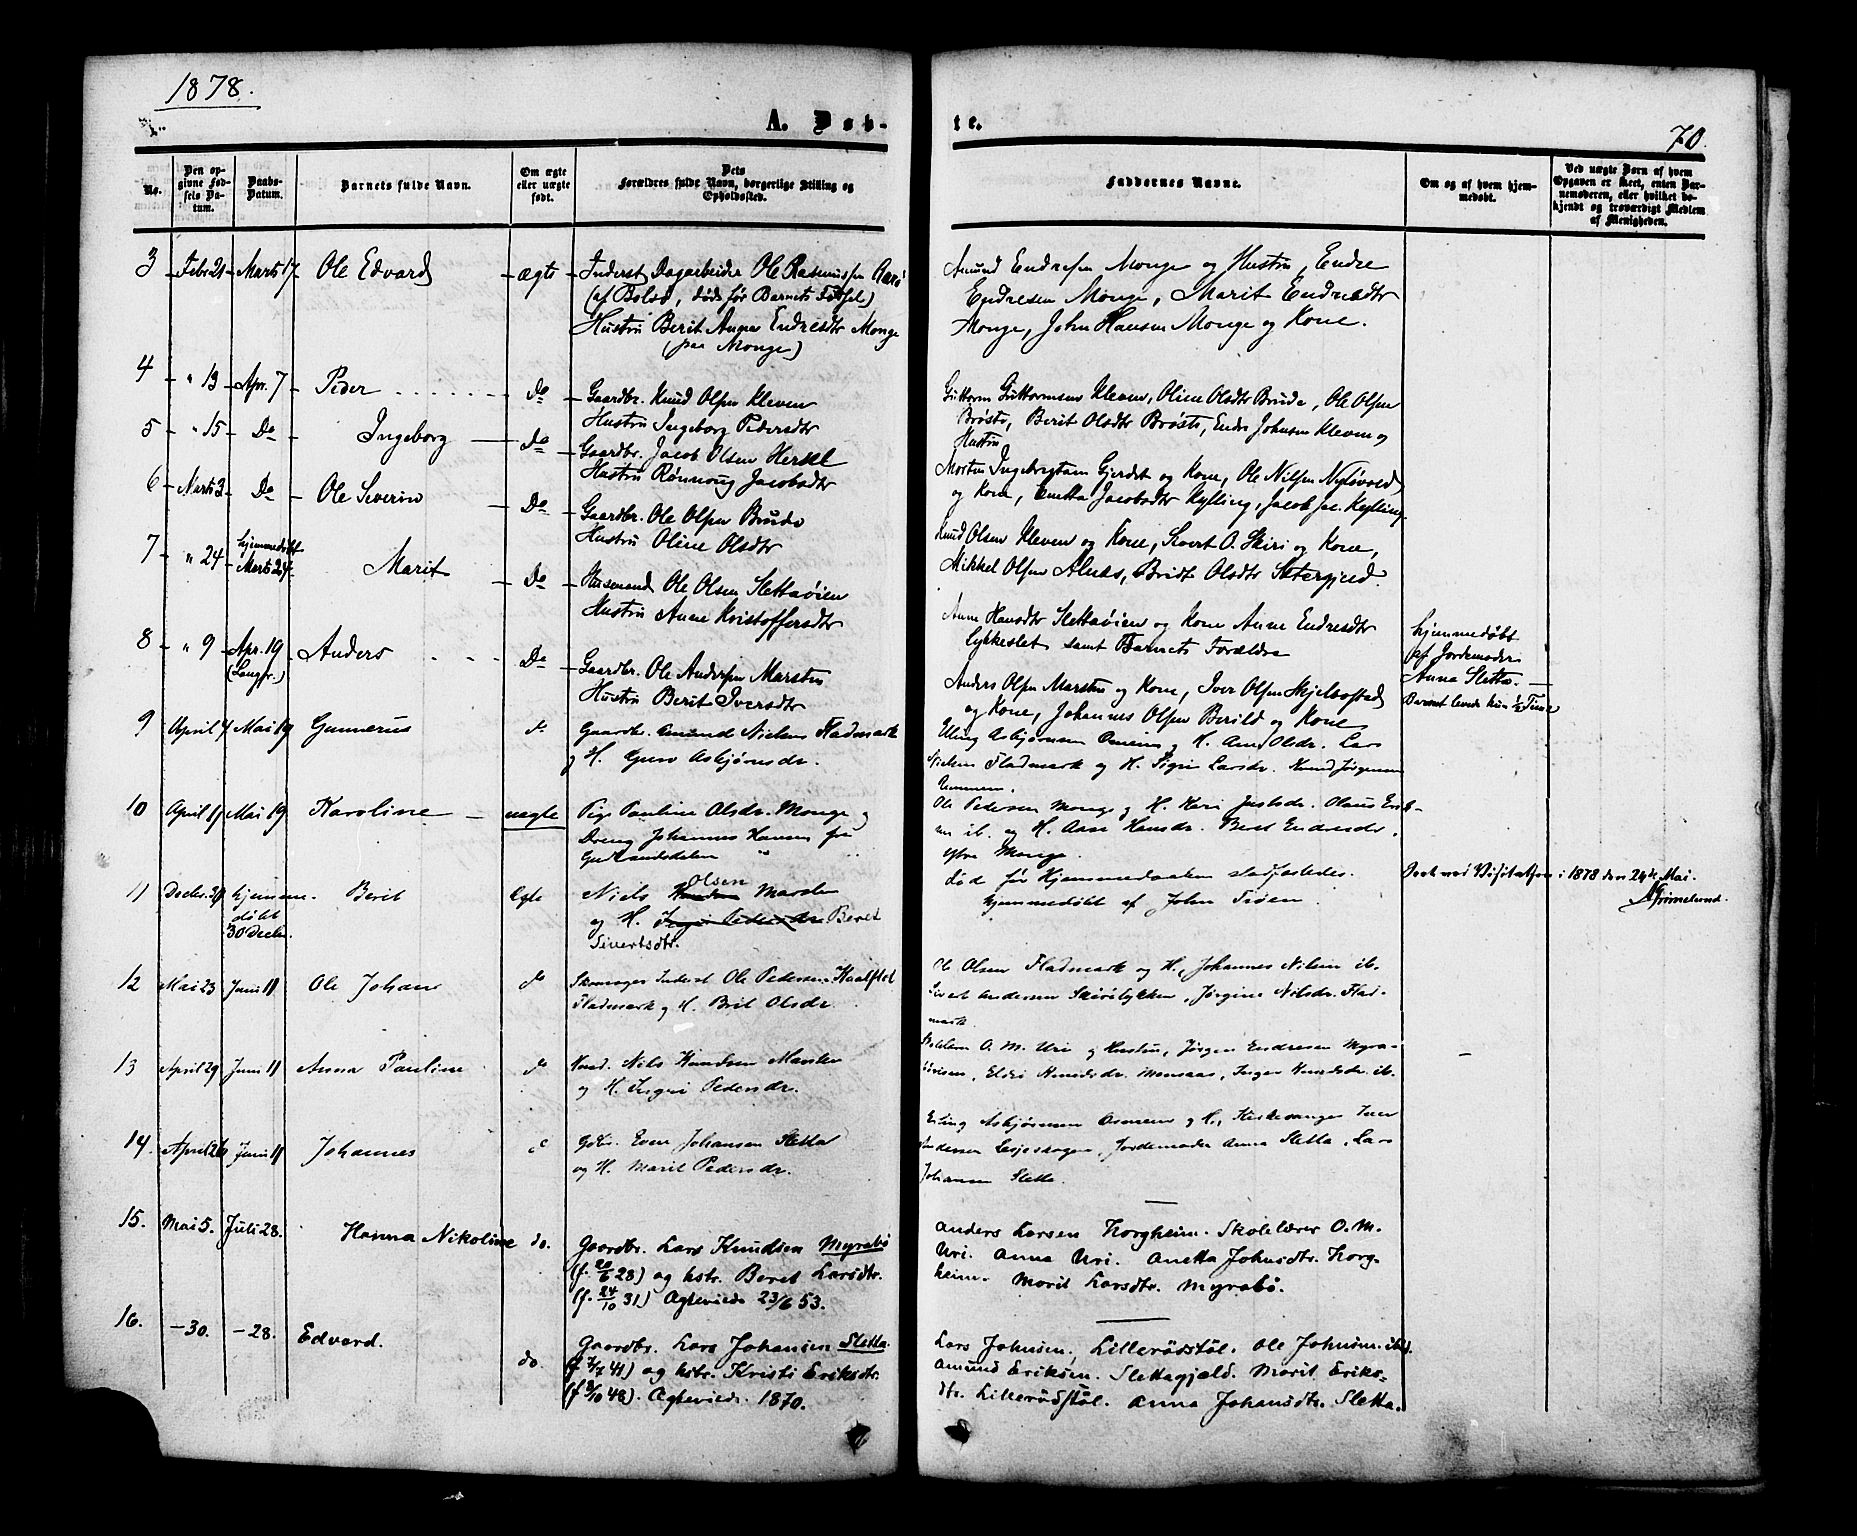 1878.
A. Døb-
te.
70.
No.
Den op-
givne Fød-
sels Da-
tum.
Daabs-
Datum.
Barnets fulde Navn.
Om ægte
eller uægte
født.
Dets
Forældres fulde Navn, borgerlige Stilling og
Opholdssted.
Faddernes Navne.
Om og af hvem hjem-
medøbt.
Ved uægte Børn af hvem
Opgaven er skeet, enten Bar-
nemoderen, eller hvilket be-
kjendt og troværdigt Medlem
af Menigheden.
3 Febr. 21 Marts 17 Ole Edvard ægte Inderst Dagarbeider Ole Rasmussen Aarø
(af Bolsø, død før Barnets Fødsel)
Hustru Berit Anna Endresdtr Monge
(paa Monge)
Amund Endresen Monge og Hustru, Endre
Endresen Monge, Marit Endresdtr
Monge, John Hansen Monge og Kone.
4 " 13 Apr. 7 Peder Do Gaardbr. Knud Olsen Kleven
Hustru Ingeborg Pedersdtr
Guttorm Guttormsen Kleven, Oline Olsdtr Brude, Ole Olsen
Brøste, Berit Olsdtr Brøste, Endre Johnsen Kleven og
Hustru
5 " 15 Do Ingeborg Do Gaardbr. Jacob Olsen Herkel
Hustru Rønnoug Jacobsdtr
Morten Ingebrigtsen Gjerdet og Kone, Ole Nilsen
og Kone, Anetta Jacobsdtr Kylling, Jacob Jac. Kylling
6 Marts 3 Do Ole Severin Do Gaardbr. Ole Olsen Brude
Hustru Oline Olsdtr
Knud Olsen Kleven og Kone, Sivert O. Skiri og Kone,
Mikkel Olsen Alnæs, Bridt Olsdtr
7 " 24 hjemmedøbt
Marts 24 Marit Do Husmand Ole Olsen Slettaøien
Hustru Anne Kristoffersdtr
Anne Hansdtr Slettaøien og Kone Anne Endresdtr
Lykkeslet samt Barnets Forældre
hjemmedøbt
af Jordemoder
Anna Sletta.
Barnet levede kun ½ Time
8 " 9 Apr. 19
(Langfr.) Anders Do Gaardbr. Ole Andersen Marsten
Hustru Berit Iversdtr
Anders Olsen Marsten og Kone, Iver Olsen Skjelbostad
og Kone, Johannes Olsen Berild og Kone
9 April 4 Mai 19 Gunnerus do Gaardbr. Amund Nielsen Fladmark
og H. Guro Asbjørnsdr.
Asbjørnsen og H. Olsdr. Lars
Nielsen Fladmark og H. Sigri Larsdr. Knud Jørgensen
10 April 19 Mai 19 Karoline uægte Pige Pauline Olsdr. Monge og
Dreng Johannes Hansen fra
Gudbrandsdalen
Ole Pedersen Monge og H. Kari Justsdr. Olaus Erik-
sen ib. og H. Ane Hansdr. Beret Endresdr.
ytre Monge.
11 Decbr. 30 hjemme-
døbt
30 Decbr. Berit Ægte Niels Olsen Marsten
og H. Inger Pedersdr Beret
Sivertsdtr.
død før Hjemmedaaben stadfæstedes.
hjemmedøbt af John Trøen.
Seet ved Visitatsen i 1878 den 24de Mai.
Grimelund.
12 Mai 23 Juni 11 Ole Johan do Skomager Inderst Ole Pedersen Kaalstad
Fladmark og H. Brit Olsdr.
Ole Olsen Fladmark og H., Johannes Nilsen ib.
Sivert Andersen Skirilykken, Jørgine Nilsdr. Flad-
mark.
13 April 29 Juni 11 Anna Pauline do Niels Knudsen Marsten
og H. Ingri Pedersdr.
Skolelærer O. M. Uri og Hustru, Jørgen Endresen Myra-
Eldri Knudsdr. Monsaas, Inger Knudsdr. ib.
14. April 26 Juni 11 Johannes Gdbr. Even Johansen Sletta
og H. Marit Pedersdr.
Erling Asbjørnsen Ormeim og H., Kirkesanger Iver
Andersen Lesjeskogen, Jordemoder Anna Sletta, Lars
Johansen Sletta.
15. Mai 5. Juli 28. Hanna Nikoline do. Gaardbr. Lars Knudsen Myrabø
(f. 20/6 28) og hstr. Beret Larsdtr.
(f. 24/10 31) Ægteviede 23/6 53.
Anders Larsen Horgheim. Skolelærer O. M.
Uri. Anna Uri. Anetta Johnsdtr. Horg-
heim. Marit Larsdtr. Myrabø.
16. —30. —28. Edvard. do. Gaardbr. Lars Johansen Sletta.
(f 7/7 41) og hstr. Kristi Eriksdtr.
(f 8/10 48). Ægteviede 1870.
Lars Johnsen, Lillerødstøl. Ole Johnsen ibid.
Amund Eriksen. Slettagjeld. Marit Eriks-
dtr. Lillerødstøl. Anna Johansdtr. Sletta.